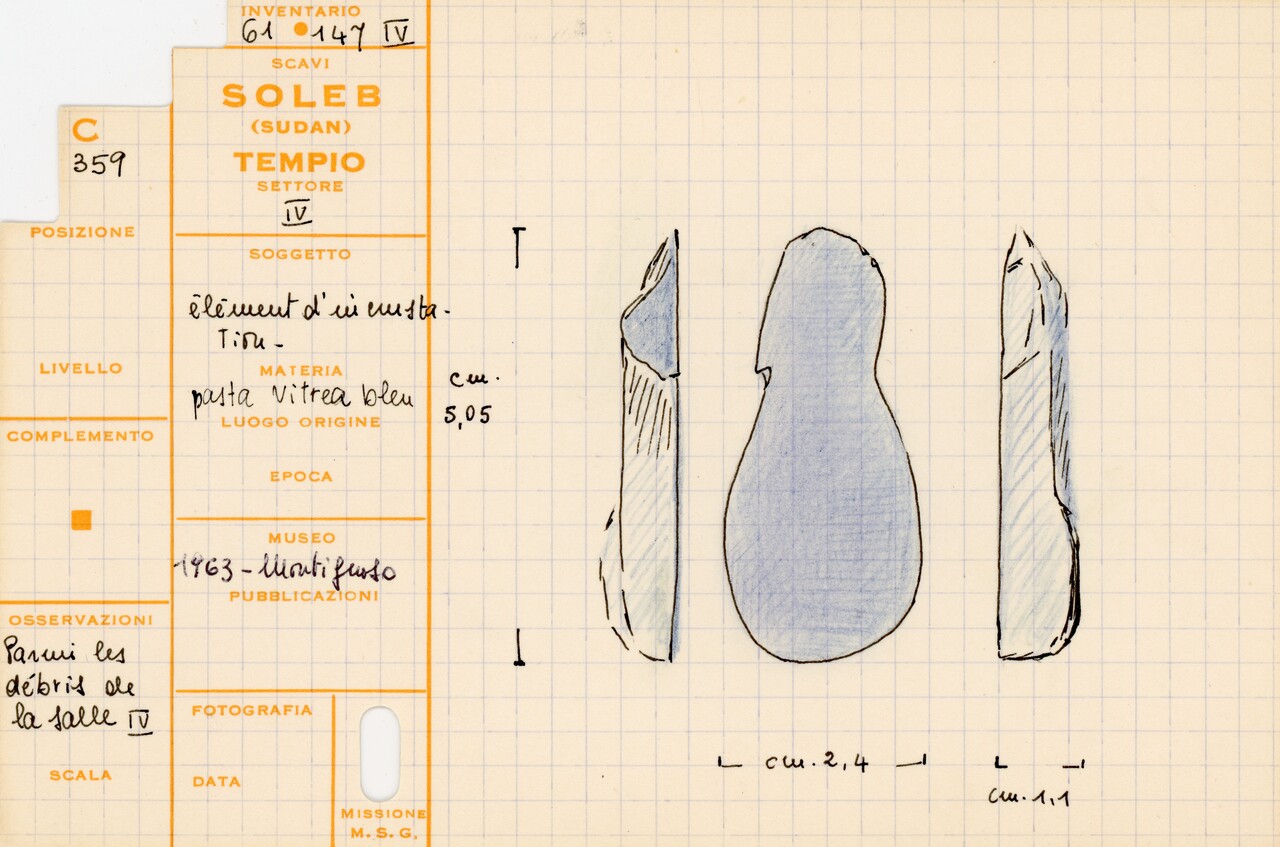 INVENTARIO
61 • 147 IV
SCAVI
SOLEB
(SUDAN)
TEMPIO
SETTORE
IV
C
359
POSIZIONE
LIVELLO
COMPLEMENTO
OSSERVAZIONI
Parmi les
débris de
la salle IV
SCALA
SOGGETTO
élément d'incrusta-
tion-
MATERIA
pasta vitrea bleu
LUOGO ORIGINE
EPOCA
MUSEO
1963-Montignoso
PUBBLICAZIONI
FOTOGRAFIA
DATA
MISSIONE
M. S. G.
cm.
5,05
cm. 2,4
cm. 1,1